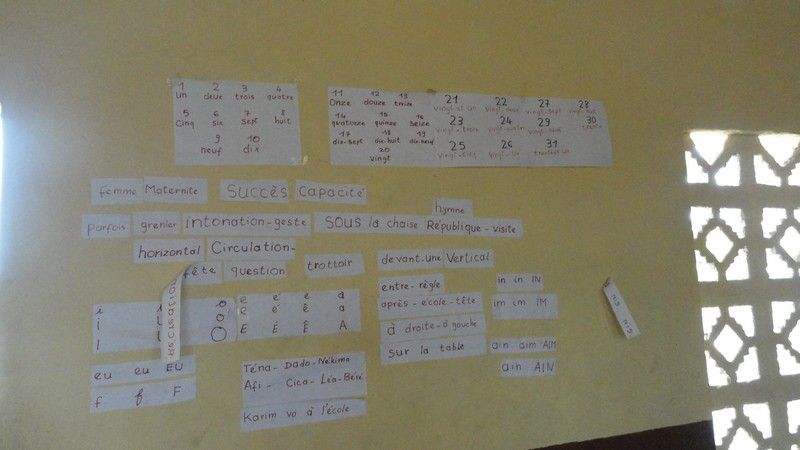 1 2 3 4
un deux trois quatre
5 6 7 8
cinq six sept huit
9 10
neuf dix
11 12 13
Onze douze treize
14 15 16
quatorze quinze seize
17 18 19
dix-sept dix-huit dix-neuf
20
vingt
21 22 27 28
vingt-et-un vingt-deux vingt-sept vingt-huit
23 24 29 30
vingt-trois vingt-quatre vingt-neuf trente
25 26 31
vingt-cinq vingt-six
femme Maternite Succès Capacité
hymne
parfois grenier intonation-geste SOUS la chaise République-visite
horizontal Circulation-
devant-une Vertical
fête question trottoir
entre-règle
in in IN
après-ecole-tête
im im IM
à droite-à gauche
sur la table
ain aim AIM
ain AIN
i o e é è a
i o e é ê a
I O E É Ê A
eu eu EU
f f F
Téna-Dado-Nékima
Afi-Cica-Léa-Béré
Karim va à l'école